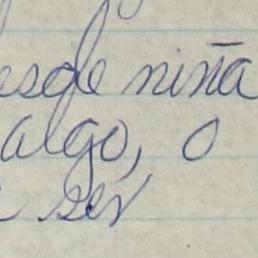 desde niña
algo, o
ser